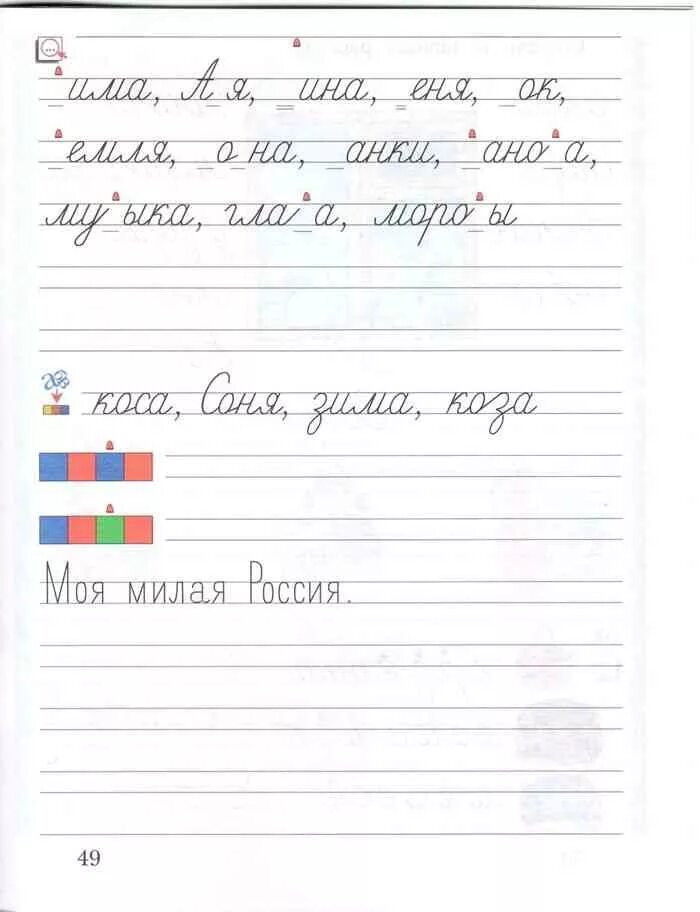 _има, А_я, _ина, _еня, _ок,
_емля, _о_на, _анки, _ано_а,
му_ыка, гла_а, моро_ы
коса, Соня, зима, коза
Моя милая Россия.
49